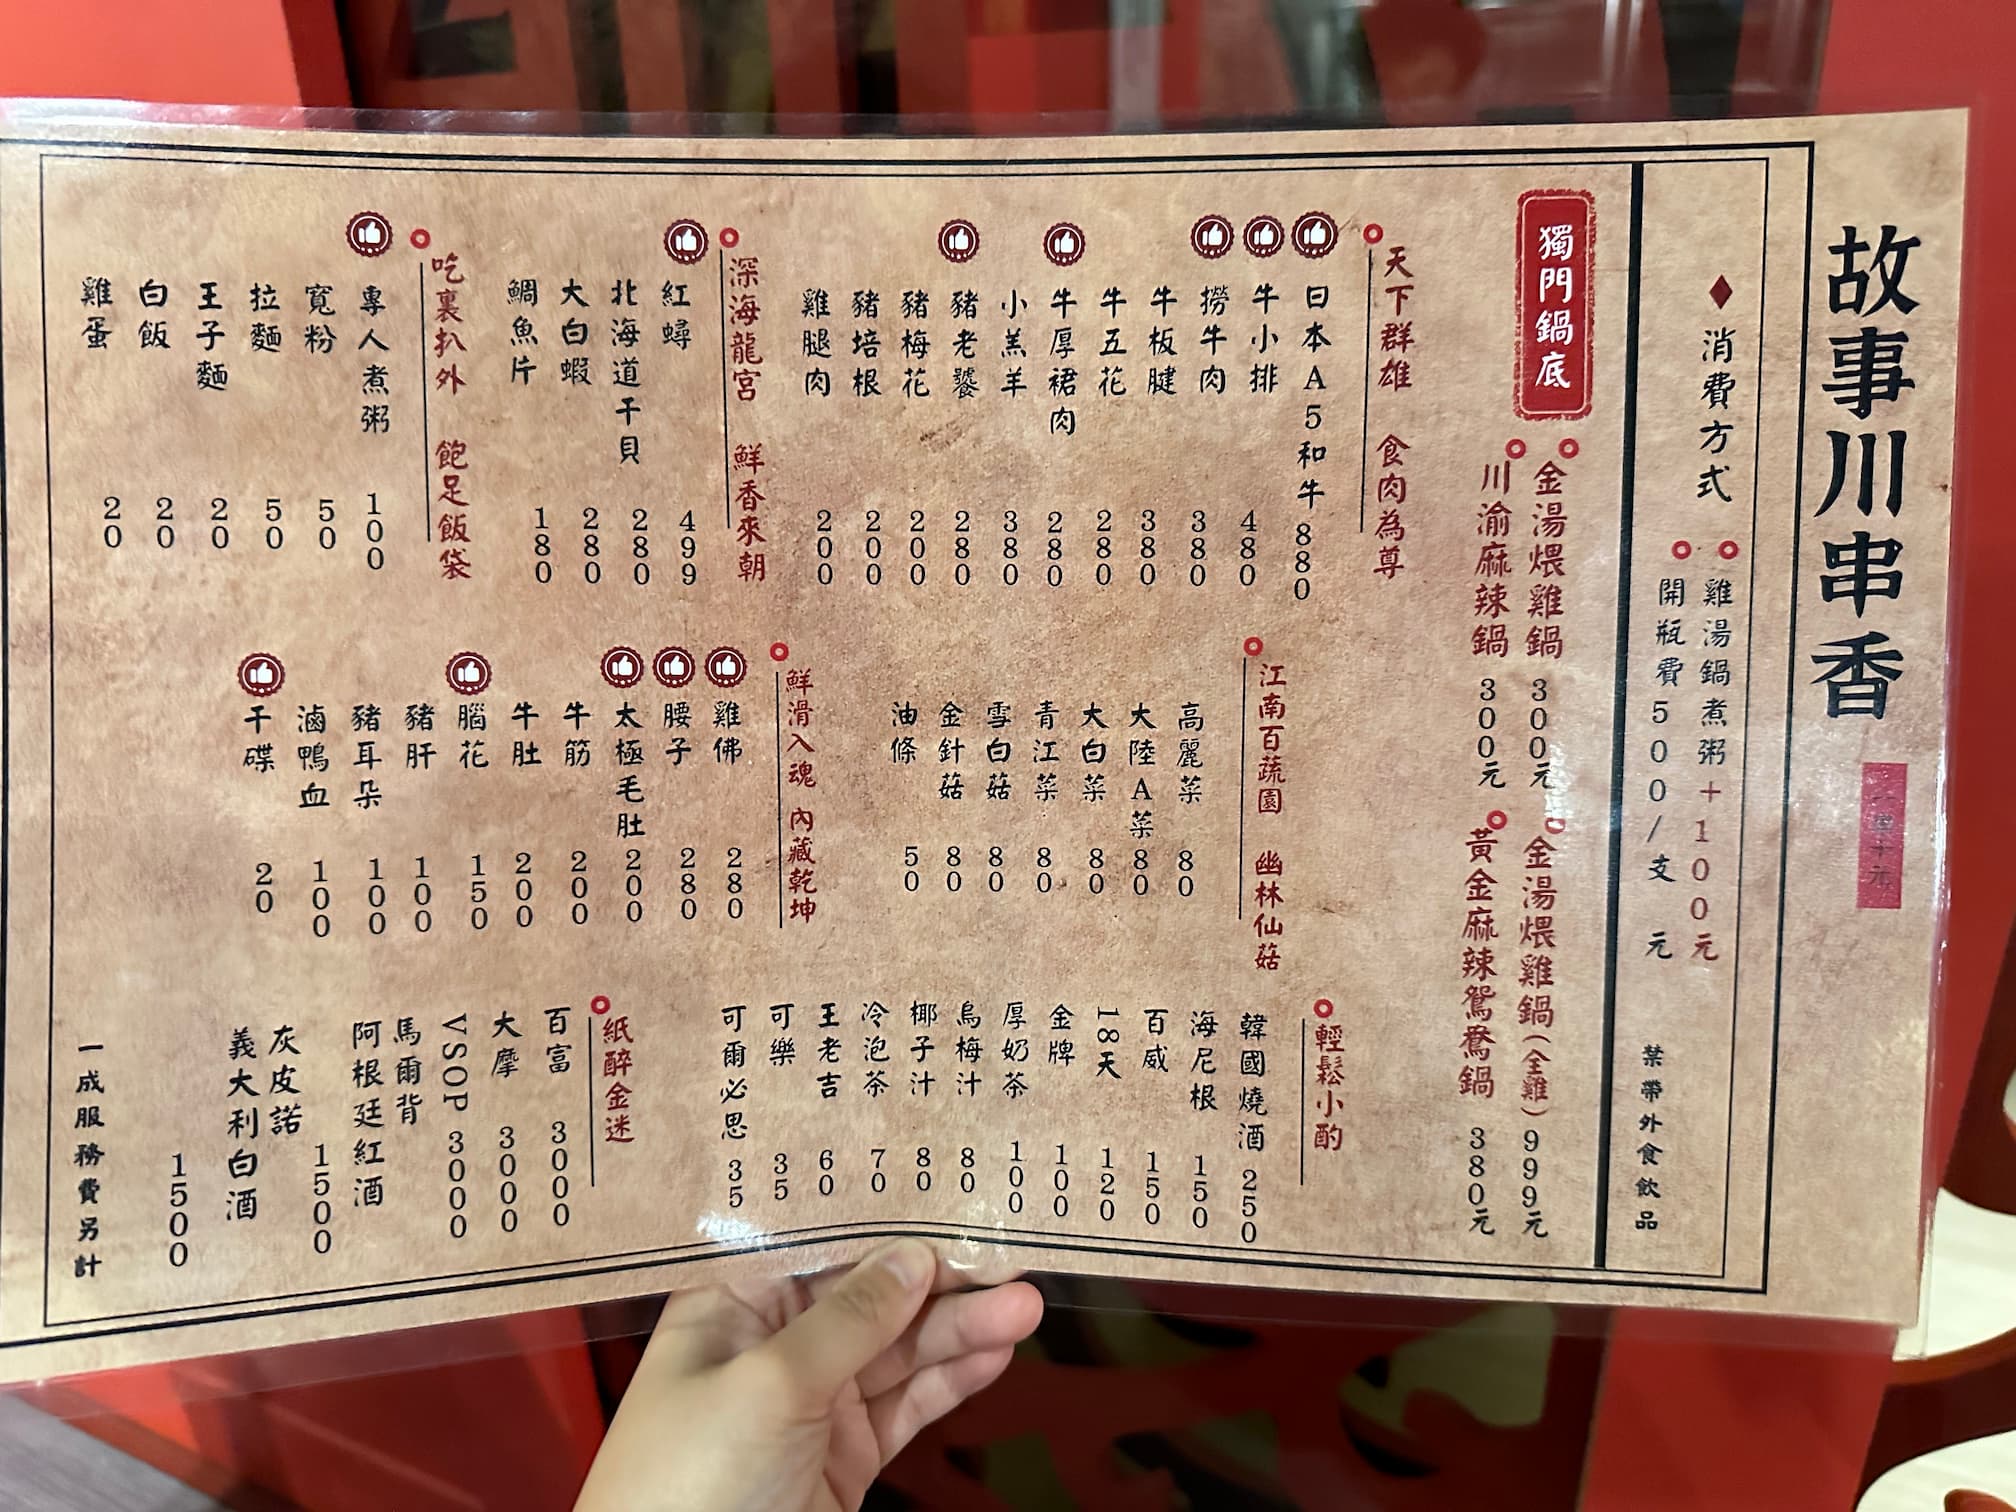 故事川串香
消費方式
雞湯鍋煮粥+100元
開瓶費500/支 元
禁帶外食飲品
獨門鍋底
金湯煨雞鍋 300元
金湯煨雞鍋(全雞) 999元
川渝麻辣鍋 300元
黃金麻辣鴛鴦鍋 380元
天下群雄 食肉為尊
日本A5和牛 880
牛小排 480
撈牛肉 380
牛板腱 380
牛五花 280
牛厚裙肉 280
小羔羊 380
豬老饕 280
豬梅花 200
豬培根 200
雞腿肉 200
深海龍宮 鮮香來朝
紅蟳 499
北海道干貝 280
大白蝦 280
鯛魚片 180
吃裏扒外 飽足飯袋
專人煮粥 100
寬粉 50
拉麵 50
王子麵 20
白飯 20
雞蛋 20
江南百蔬園 幽林仙菇
高麗菜 80
大陸A菜 80
大白菜 80
青江菜 80
雪白菇 80
金針菇 80
油條 50
鮮滑入魂 內藏乾坤
雞佛 280
腰子 280
太極毛肚 200
牛筋 200
牛肚 200
腦花 150
豬肝 100
豬耳朵 100
滷鴨血 100
干碟 20
輕鬆小酌
韓國燒酒 250
海尼根 150
百威 150
18天 120
金牌 100
厚奶茶 100
烏梅汁 80
椰子汁 80
冷泡茶 70
王老吉 60
可樂 35
可爾必思 35
紙醉金迷
百富 3000
大摩 3000
VSOP 3000
馬爾背
阿根廷紅酒 1500
灰皮諾
義大利白酒 1500
一成服務費另計